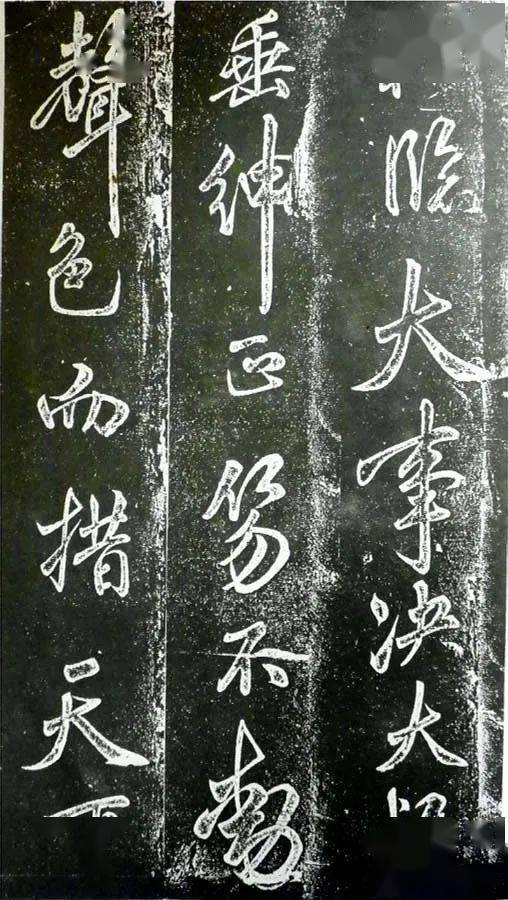 臨大事决大
垂紳正笏不動
聲色而措天